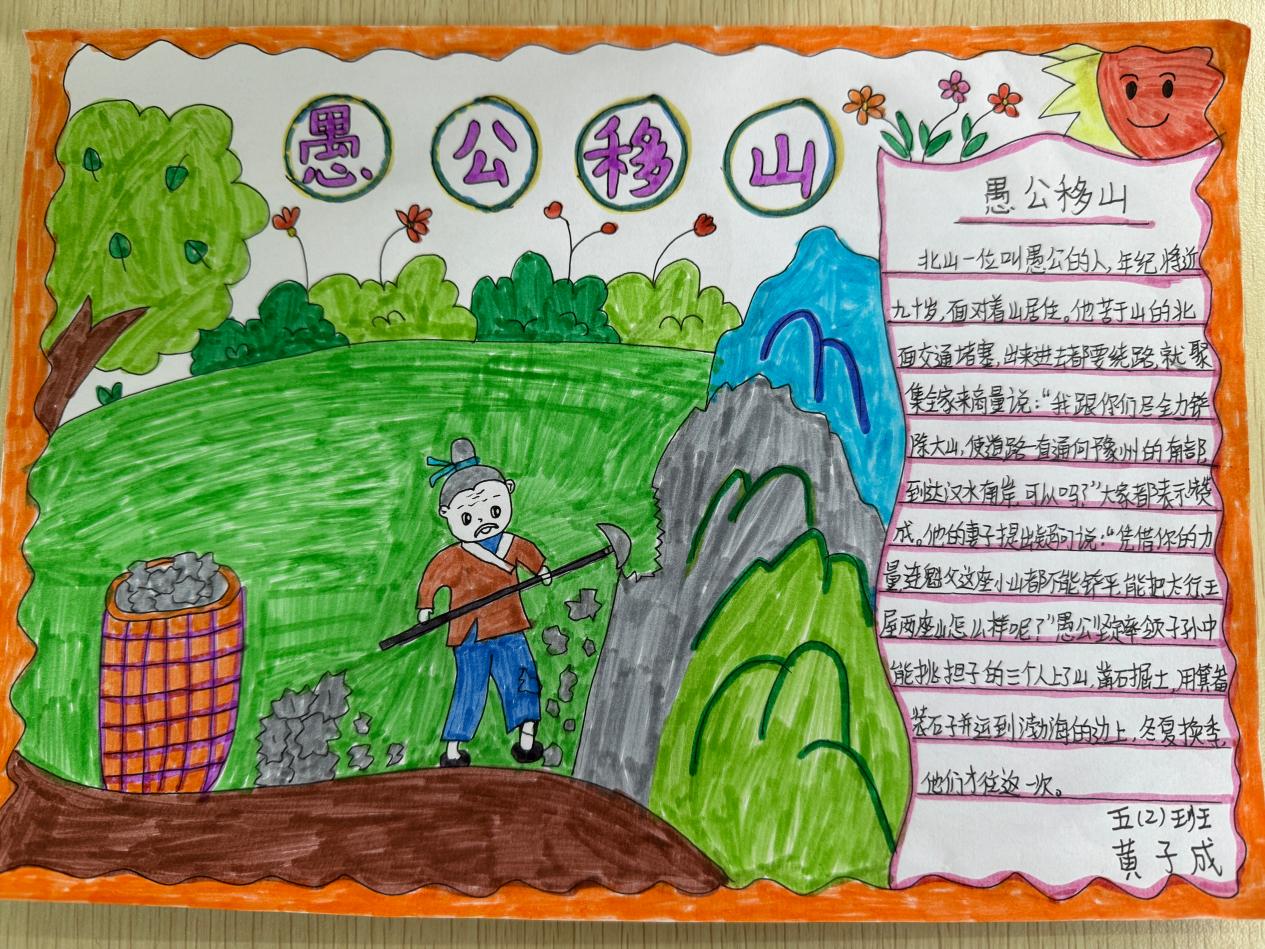 愚公移山
愚公移山
北山一位叫愚公的人,年纪将近
九十岁,面对着山居住。他苦于山的北
面交通堵塞,出来进去都要绕路,就聚
集全家来商量说:“我跟你们尽全力铲
除大山,使道路一直通向豫州的南部,
到达汉水南岸,可以吗?”大家都表示赞
成。他的妻子提出疑问说:“凭借你的力
量连魁父这座小山都不能铲平,能把太行王
屋两座山怎么样呢?”愚公坚定率领子孙中
能挑担子的三个人上了山,凿石掘土,用箕畚
装石子并运到渤海的边上,冬夏换季,
他们才往返一次。
五(2)班
黄子成